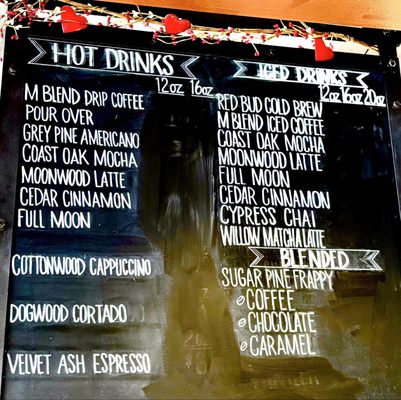 HOT DRINKS
12oz 16oz
M BLEND DRIP COFFEE
POUR OVER
GREY PINE AMERICANO
COAST OAK MOCHA
MOONWOOD LATTE
CEDAR CINNAMON
FULL MOON
COTTONWOOD CAPPUCCINO
DOGWOOD CORTADO
VELVET ASH ESPRESSO
ICED DRINKS
12oz 16oz 20oz
RED BUD COLD BREW
M BLEND ICED COFFEE
COAST OAK MOCHA
MOONWOOD LATTE
FULL MOON
CEDAR CINNAMON
CYPRESS CHAI
WILLOW MATCHA LATTE
BLENDED
SUGAR PINE FRAPPY
COFFEE
CHOCOLATE
CARAMEL